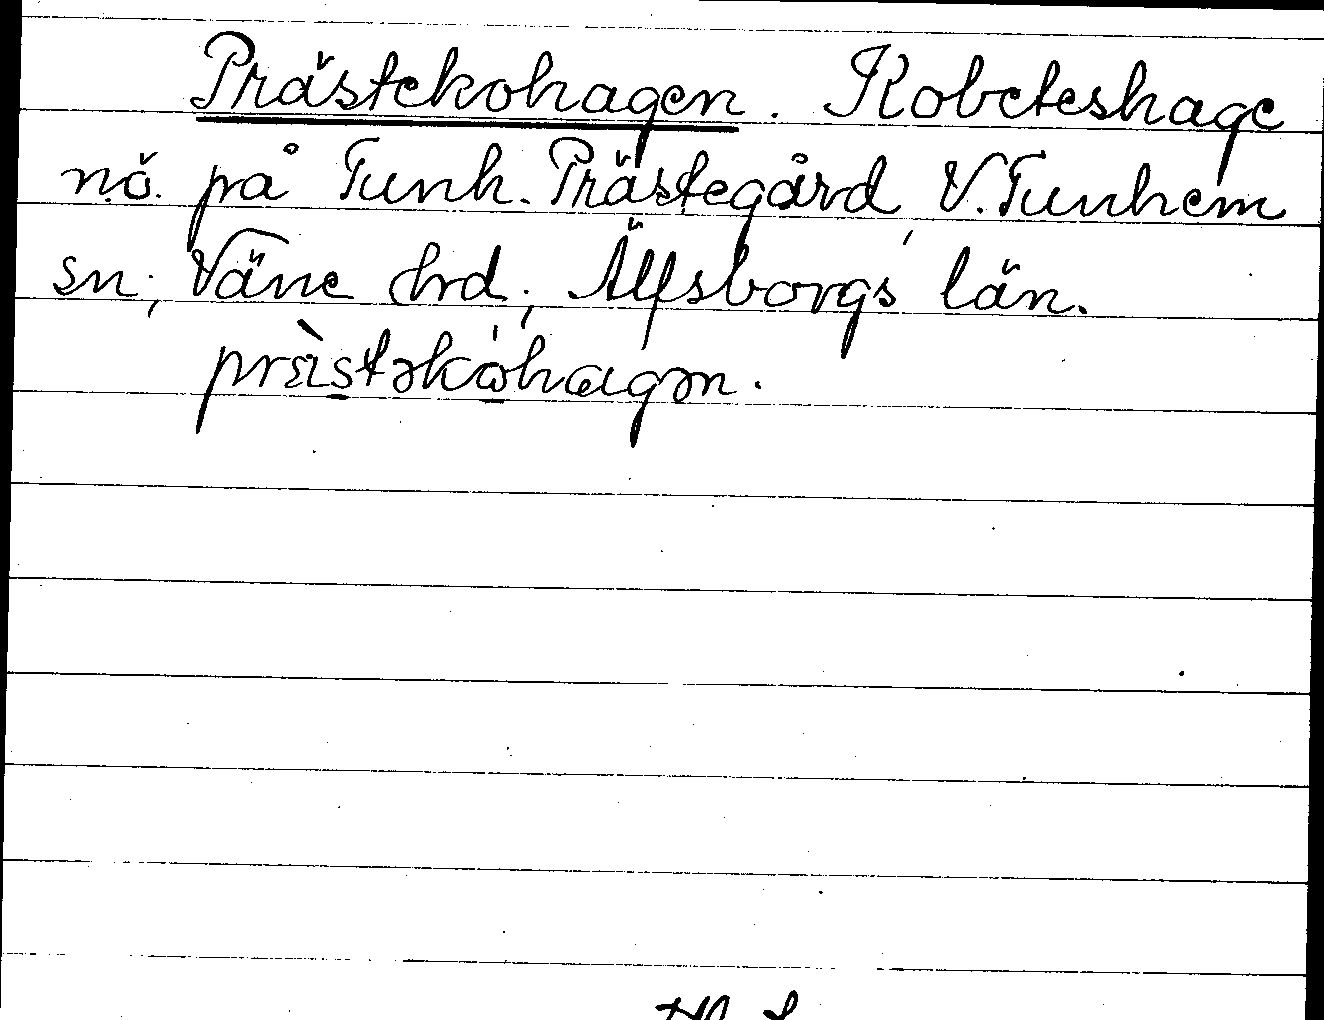 Prästekohagen. Kobeteshage
nö. på Tunh. Prästegård, V. Tunhem
sn; Väne hrd; Älfsborgs län.
prästəkohagən.